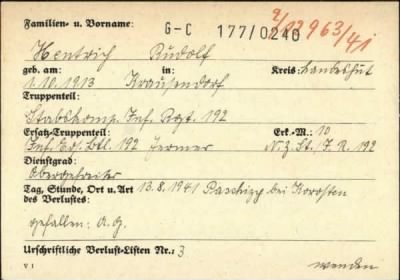 Familien- u. Vorname: G-C 177/0240 2/12963/41
Hentrich Rudolf
geb. am: in: Kreis: Landeshut
1.10.1913 Krausendorf
Truppenteil:
Stabskomp. Inf. Rgt. 192
Ersatz-Truppenteil: Erk.-M.: 10
Inf. Ers. Btl. 192 N.Z. St./J.R. 192
Dienstgrad:
Obergefreiter
Tag, Stunde, Ort u. Art 13.8.1941 bei Korosten
des Verlustes:
gefallen: A.G.
Urschriftliche Verlust-Listen Nr.: 3
V I wenden